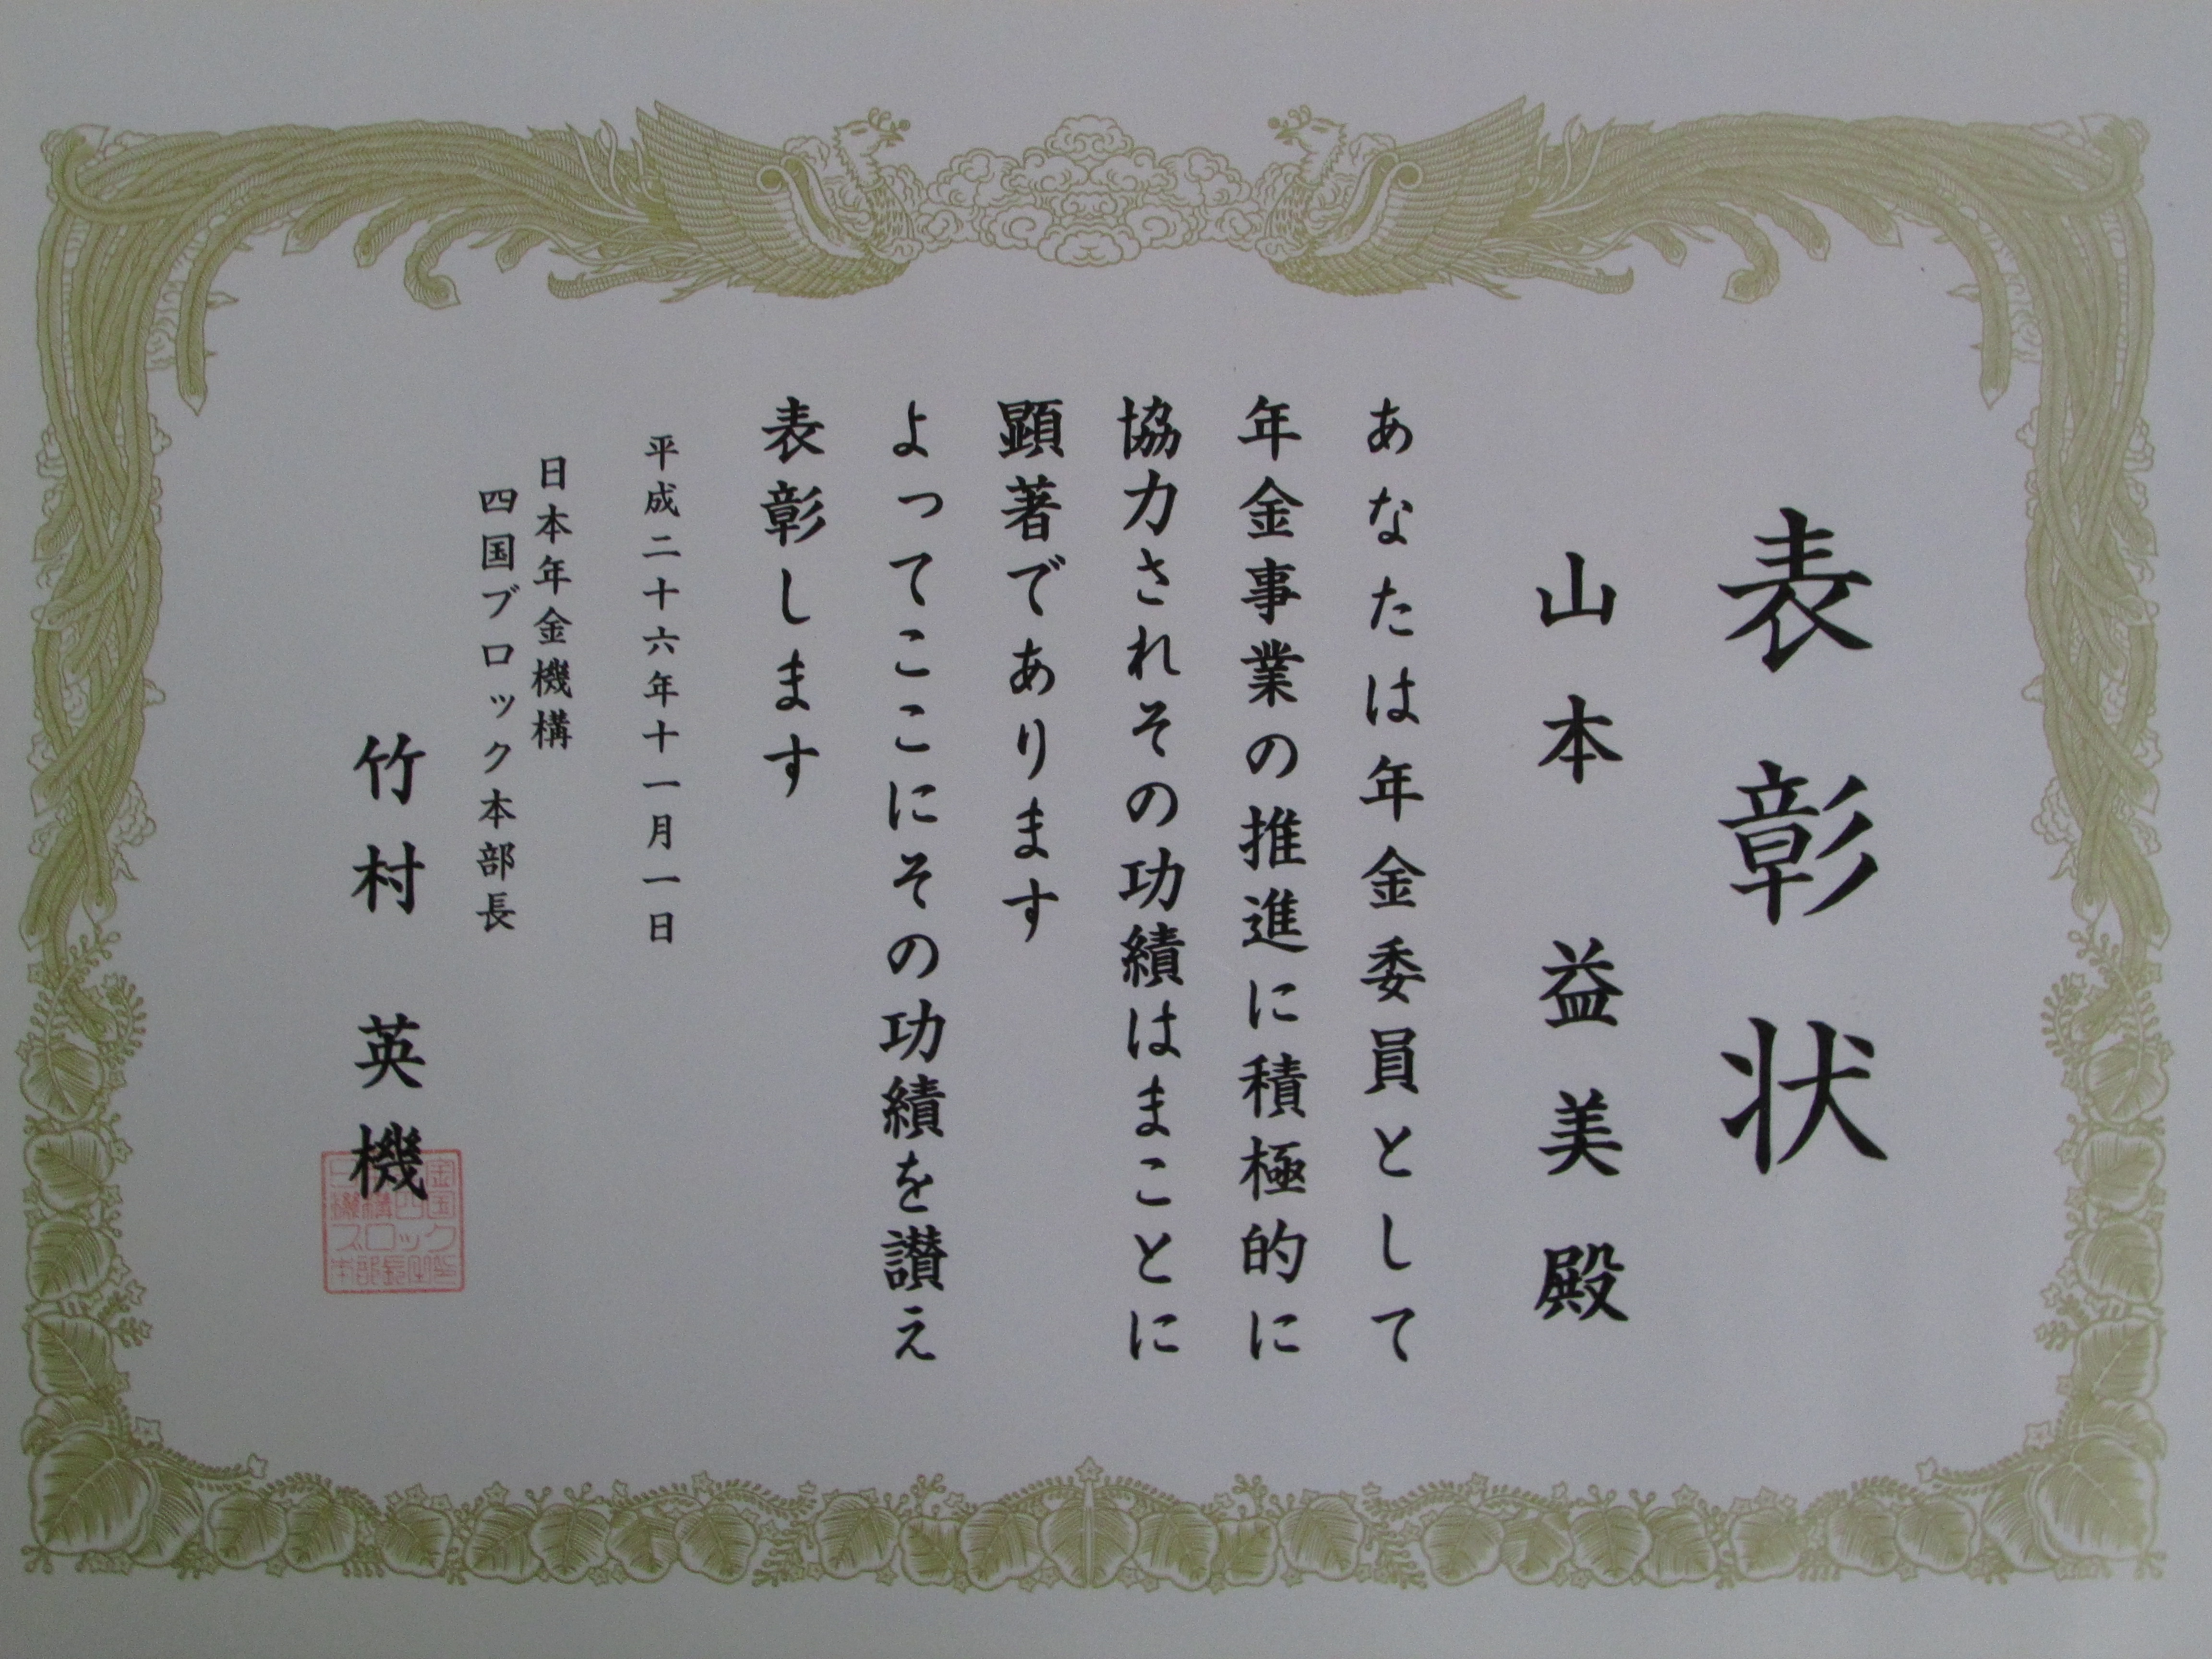 表彰状
山本 益美 殿
あなたは年金委員として
年金事業の推進に積極的に
協力されその功績はまことに
顕著であります
よってここにその功績を讃え
表彰します
平成二十六年十一月一日
日本年金機構
四国ブロック本部長
竹村 英機